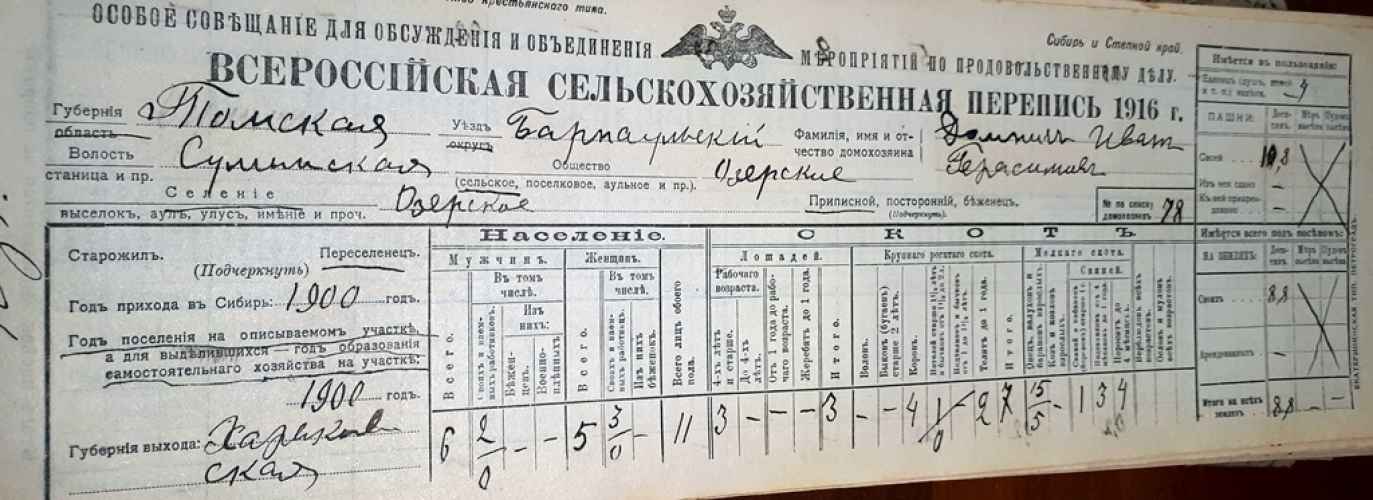 крестьянскаго типа.
ОСОБОЕ СОВѢЩАНІЕ ДЛЯ ОБСУЖДЕНІЯ И ОБЪЕДИНЕНІЯ МѢРОПРІЯТІЙ ПО ПРОДОВОЛЬСТВЕННОМУ ДѢЛУ.
Сибирь и Степной край.
ВСЕРОССІЙСКАЯ СЕЛЬСКОХОЗЯЙСТВЕННАЯ ПЕРЕПИСЬ 1916 г.
Губернія Томская Уѣздъ Барнаульскій Фамилія, имя и от- Иван
область округъ чество домохозяина Герасимов
Волость Сумынская Общество Озерское
станица и пр. (сельское, поселковое, аульное и пр.)
Селеніе Озерское Приписной, посторонній, бѣженецъ.
выселокъ, аулъ, улусъ, имѣніе и проч. (Подчеркнуть).
№ по списку домохозяевъ 78
Старожилъ. Переселенецъ.
(Подчеркнуть)
Годъ прихода въ Сибирь: 1900 годъ.
Годъ поселенія на описываемомъ участкѣ,
а для выдѣлившихся — годъ образованія
самостоятельнаго хозяйства на участкѣ:
1900 годъ.
Губернія выхода: Харьков
ская
Населеніе.
Мужчинъ. Женщинъ.
Въ томъ числѣ. Въ томъ числѣ.
Изъ нихъ:
Всего.
Своихъ и наем-
ныхъ работниковъ.
Бѣжен-
цевъ.
Военно-
плѣнныхъ.
Всего.
Своихъ и наем-
ныхъ работницъ.
Изъ нихъ
бѣженокъ.
Всего лицъ обоего
пола.
6 2/0 - - 5 3/0 - 11
СКОТЪ
Лошадей. Крупнаго рогатаго скота. Мелкаго скота.
Рабочаго возраста. Свиней.
4-хъ лѣтъ
и старше.
До 4-хъ
лѣтъ.
Отъ 1 года до рабо-
чаго возраста.
Жеребятъ до 1 года.
Итого.
Воловъ.
Быковъ (бугаевъ)
старше 2 лѣтъ.
Коровъ.
Телятъ до 1 года.
Итого.
3 - - - 3 - - 4 1/0 - 2 7 15/5 - 1 3 4
Имѣется въ пользованіи:
ПАШНИ:
Своей
Имѣется всего подъ посѣвомъ:
НА ЗЕМЛЯХЪ:
Своихъ 8,8
Арендованныхъ -
Итого на всѣхъ
земляхъ 8,8 - -
ЕКАТЕРИНИНСКАЯ ТИП. ПЕТРОГРАДЪ.